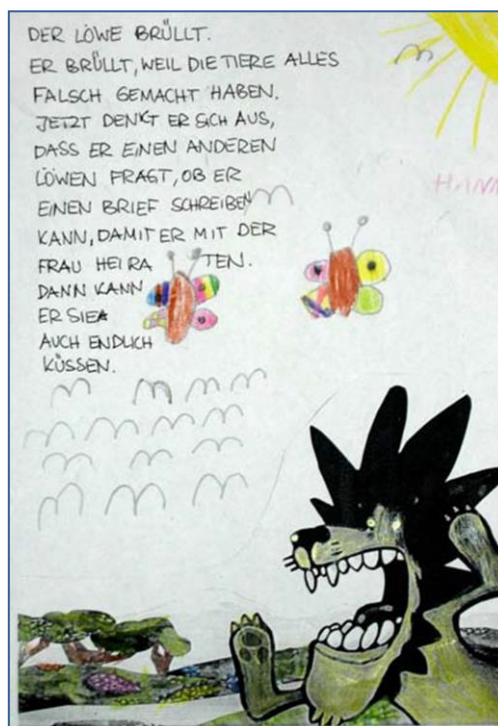 DER LÖWE BRÜLLT.
ER BRÜLLT, WEIL DIE TIERE ALLES
FALSCH GEMACHT HABEN.
JETZT DENKT ER SICH AUS,
DASS ER EINEN ANDEREN
LÖWEN FRAGT, OB ER
EINEN BRIEF SCHREIBEN
KANN, DAMIT ER MIT DER
FRAU HEIRA TEN.
DANN KANN
ER SIE
AUCH ENDLICH
KÜSSEN.
HANN